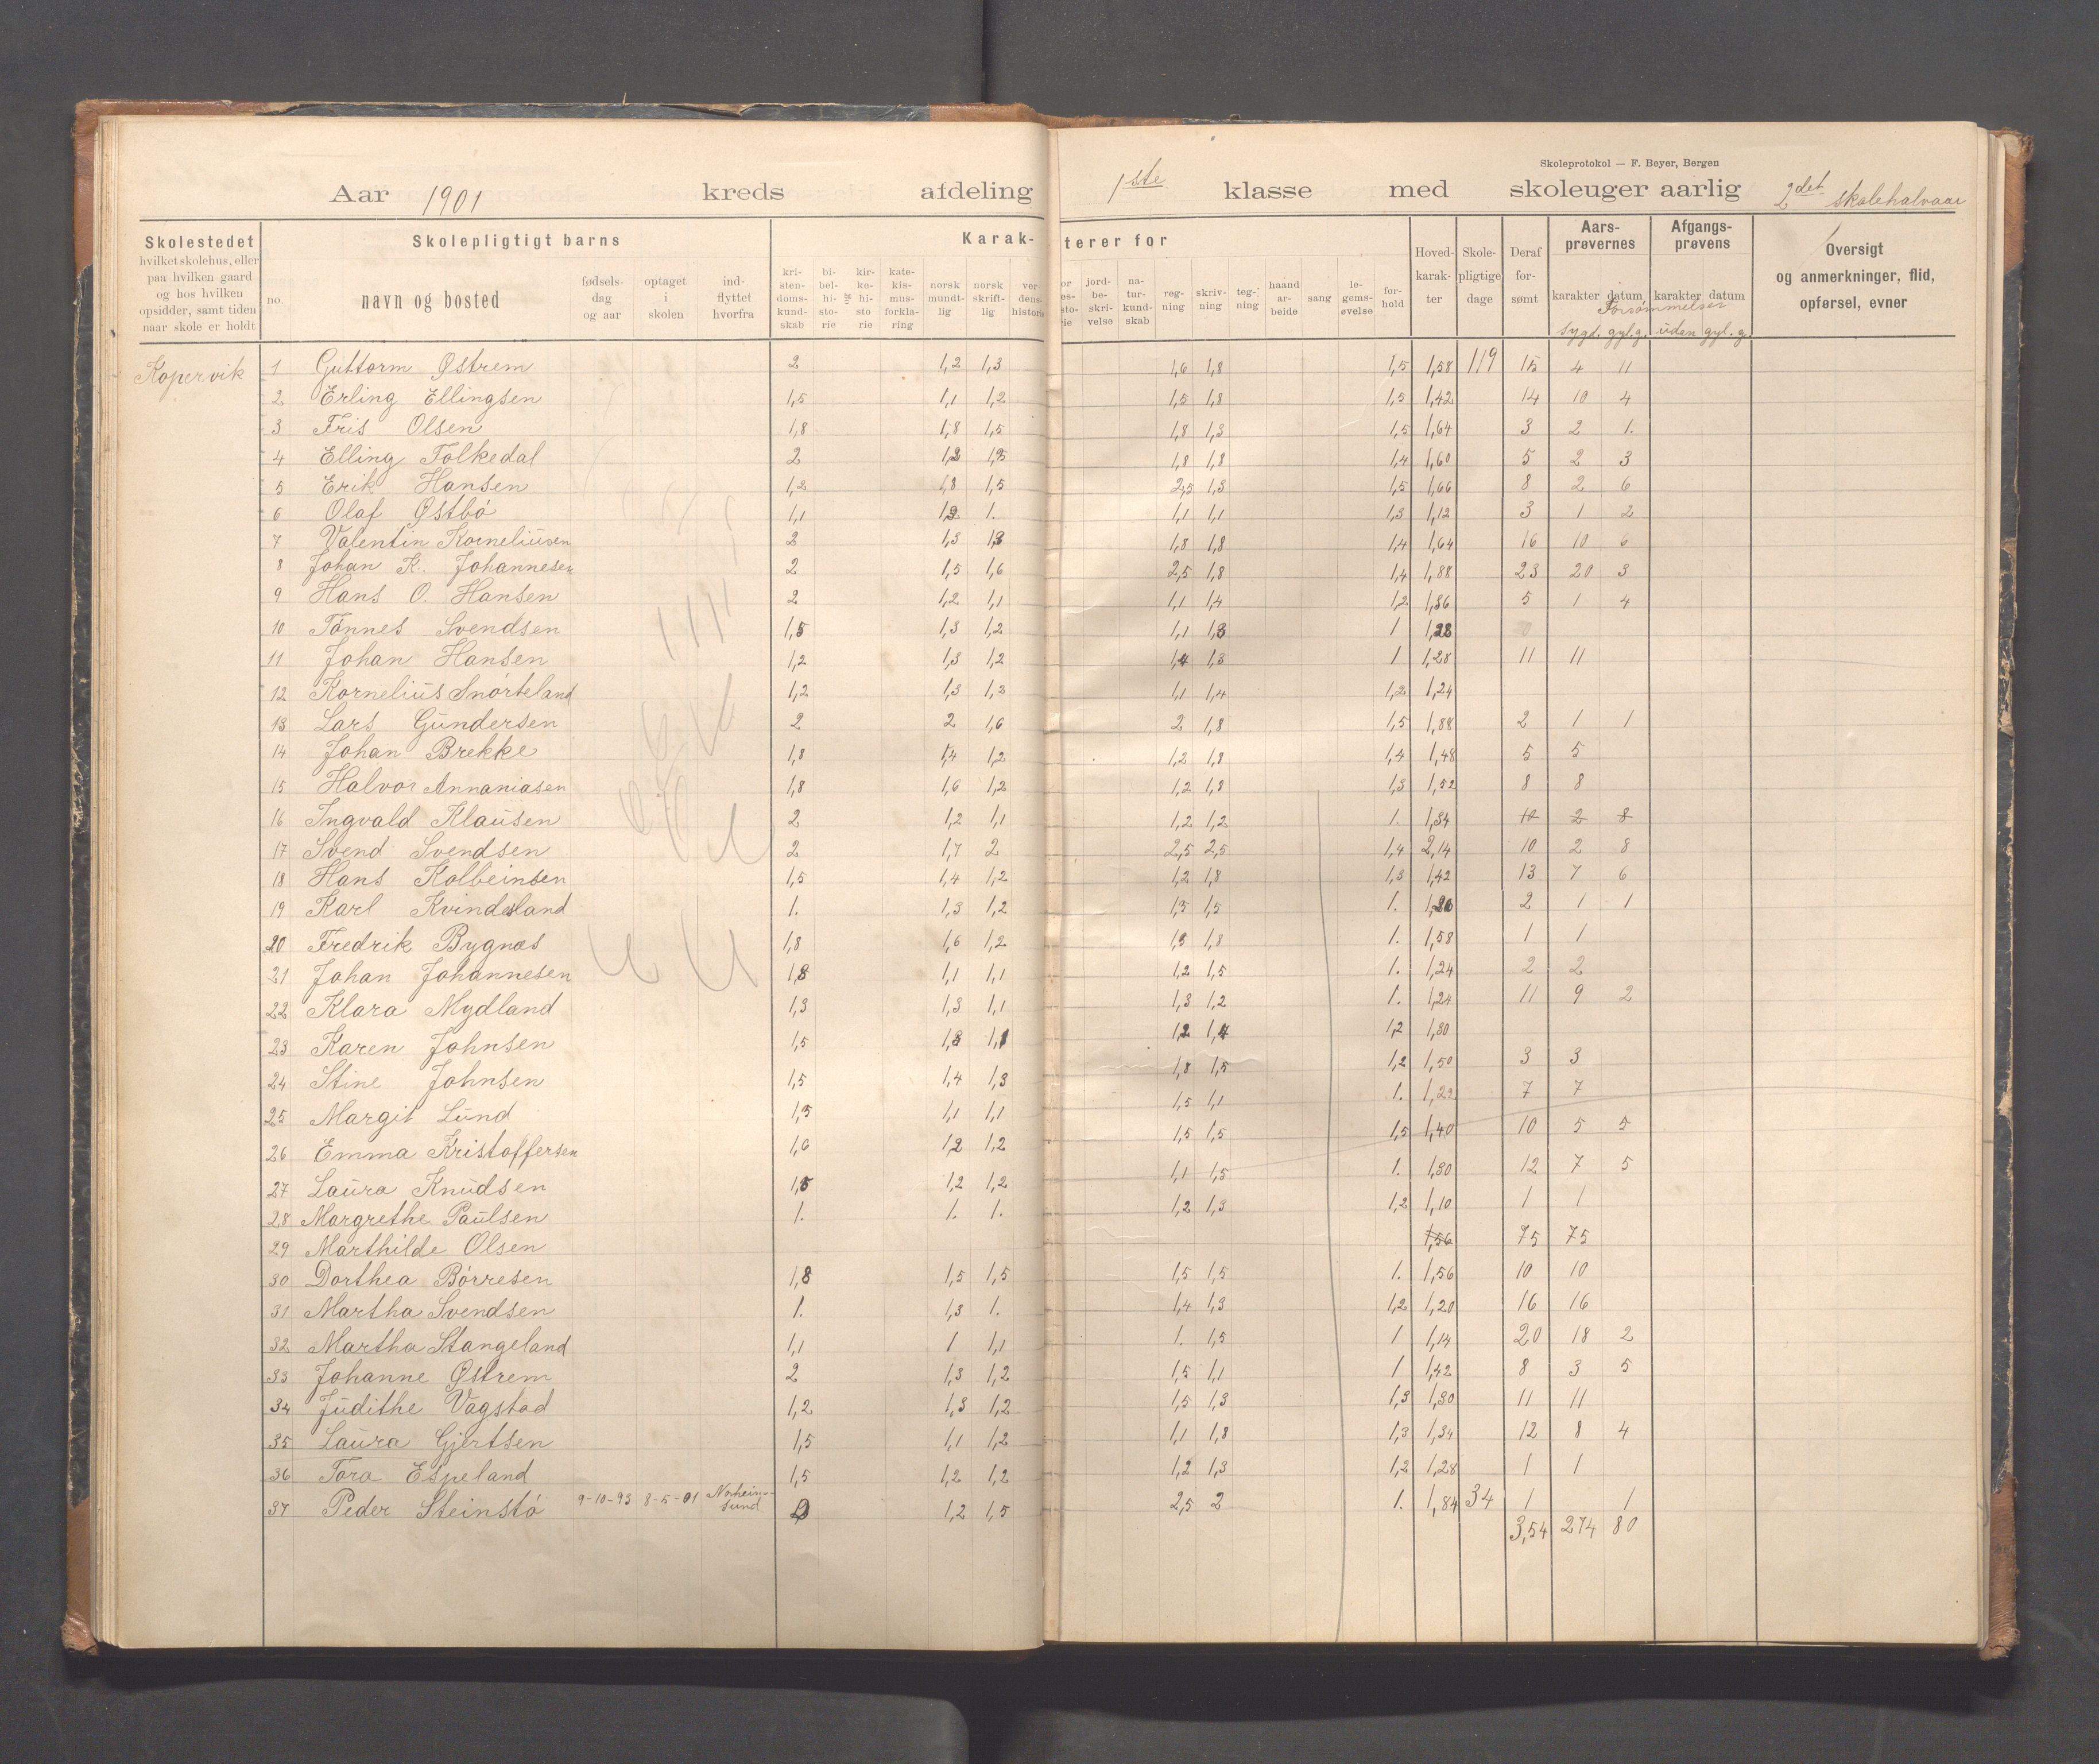 Skoleprotokol — F. Beyer, Bergen
Aar 1901 kreds afdeling 1ste klasse med skoleuger aarlig 2det skolehalvaar
Skolestedet hvilket skolehus, eller paa hvilken gaard og hos hvilken opsidder, samt tiden naar skole er holdt
Skolepligtigt barns
no. navn og bosted fødsels-dag og aar optaget i skolen ind-flyttet hvorfra
Karak-terer for
kri-sten-doms-kund-skab bi-bel-hi-sto-rie og kir-ke-hi-sto-rie kate-kis-mus-forkla-ring norsk mundt-lig norsk skrift-lig ver dens historie
jord-be-skri-velse na-tur-kund-skab reg-ning skriv-ning teg-ning haand ar-beide sang le-gems-øvelse for-hold
Hoved-karak-ter Skole-pligtige dage Deraf for-sømt
Aars-prøvernes karakter datum Afgangs-prøvens karakter datum
Forsømmelser
sygd. gyl.g. uden gyl. g.
Oversigt og anmerkninger, flid, opførsel, evner
Kopervik 1 Guttorm Østrem 2 1,2 1,3 1,6 1,8 1,5 1,58 119 15 4 11
2 Erling Ellingsen 1,5 1,1 1,2 1,5 1,8 1,5 1,42 14 10 4
3 Fris Olsen 1,8 1,8 1,5 1,8 1,3 1,5 1,64 3 2 1.
4 Elling Folkedal 2 1,8 1,8 1,4 1,60 5 2 3
5 Erik Hansen 1,2 1,8 1,5 2,5 1,3 1,5 1,66 8 2 6
6 Olaf Østbö 1,1 1. 1,1 1,1 1,3 1,12 3 1 2
7 Valentin Korneliusen 2 1,3 1,3 1,8 1,8 1,4 1,64 16 10 6
8 Johan K. Johannesen 2 1,5 1,6 2,5 1,8 1,4 1,88 23 20 3
9 Hans O. Hansen 2 1,2 1,1 1,1 1,4 1,2 1,36 5 1 4
10 Tönnes Svendsen 1,5 1,3 1,2 1,1 1,3 1 1,28 0
11 Johan Hansen 1,2 1,3 1,2 1,4 1,3 1 1,28 11 11
12 Kornelius Snörteland 1,2 1,3 1,2 1,1 1,4 1,2 1,24
13 Lars Gundersen 2 2 1,6 2 1,8 1,5 1,88 2 1 1
14 Johan Brekke 1,8 1,4 1,2 1,2 1,8 1,4 1,48 5 5
15 Halvor Annaniasen 1,8 1,6 1,2 1,2 1,8 1,3 1,52 8 8
16 Ingvald Klausen 2 1,2 1,1 1,2 1,2 1. 1,34 2 8
17 Svend Svendsen 2 1,7 2 2,5 2,5 1,4 2,14 10 2 8
18 Hans Kolbeinsen 1,5 1,4 1,2 1,2 1,8 1,3 1,42 13 7 6
19 Karl Kvindesland 1. 1,3 1,2 1,3 1,5 1. 1,26 2 1 1
20 Fredrik Bygnæs 1,8 1,6 1,2 1,8 1. 1,58 1 1
21 Johan Johannesen 1,8 1,1 1,1 1,2 1,5 1. 1,24 2 2
22 Klara Mydland 1,3 1,3 1,1 1,3 1,2 1. 1,24 11 9 2
23 Karen Johnsen 1,5 1,3 1,1 1,2 1,4 1,2 1,30
24 Stine Johnsen 1,5 1,4 1,3 1,8 1,5 1,2 1,50 3 3
25 Margit Lund 1,5 1,1 1,1 1,5 1,1 1. 1,22 7 7
26 Emma Kristoffersen 1,6 1,2 1,2 1,5 1,5 1,5 1,40 10 5 5
27 Laura Knudsen 1,5 1,2 1,2 1,1 1,5 1. 1,30 12 7 5
28 Margrethe Paulsen 1. 1. 1. 1,2 1,3 1,2 1,10 1 1
29 Marthilde Olsen 1,56 75 75
30 Dorthea Börresen 1,8 1,5 1,5 1,5 1,5 1. 1,56 10 10
31 Martha Svendsen 1. 1,3 1. 1,4 1,3 1,2 1,20 16 16
32 Martha Stangeland 1,1 1 1,1 1. 1,5 1 1,14 20 18 2
33 Johanne Østrem 2 1,3 1,2 1,5 1,1 1 1,42 8 3 5
34 Judithe Vagstad 1,2 1,3 1,2 1,5 1,3 1,3 1,30 11 11
35 Laura Gjertsen 1,5 1,1 1,2 1,1 1,8 1,3 1,34 12 8 4
36 Tora Espeland 1,5 1,2 1,2 1,2 1,3 1,2 1,28 1 1
37 Peder Steinstö 9-10-93 8-5-01 Norheimsund 1,2 1,5 2,5 2 1. 1,84 34 1 1
3,54 274 80